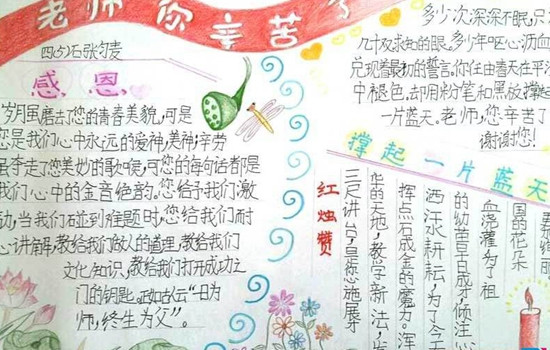 老师你辛苦
四(5)石张匀麦
感恩
岁月虽磨去了您的青春美貌,可是
您是我们心中永远的爱神,美神,辛劳
虽夺走了您美妙的歌喉,可您的每句话都是
我们心中的金音绝音。您给予我们激
动,当我们碰到难题时,您给我们耐
心讲解,教给我们做人的道理,教给我们
文化知识,教给我们打开成功之
门的钥匙。正如古人云“一日为
师,终生为父”。
多少次深深不眠,只
几十双求知的眼。多少年呕心沥血
兑现着最初的誓言,你任由春天在平
中褪色,却用粉笔和黑放撑起
一片蓝天。老师,您辛苦了
谢谢您!
撑起一片蓝天
红烛赞
三尺讲台,是您施展
华的天地;教学新法,发
挥点石成金的魔力。浑
洒汗水耕耘,为了今天
的幼苗早日成才,倾注心
血浇灌为了祖
国的花朵